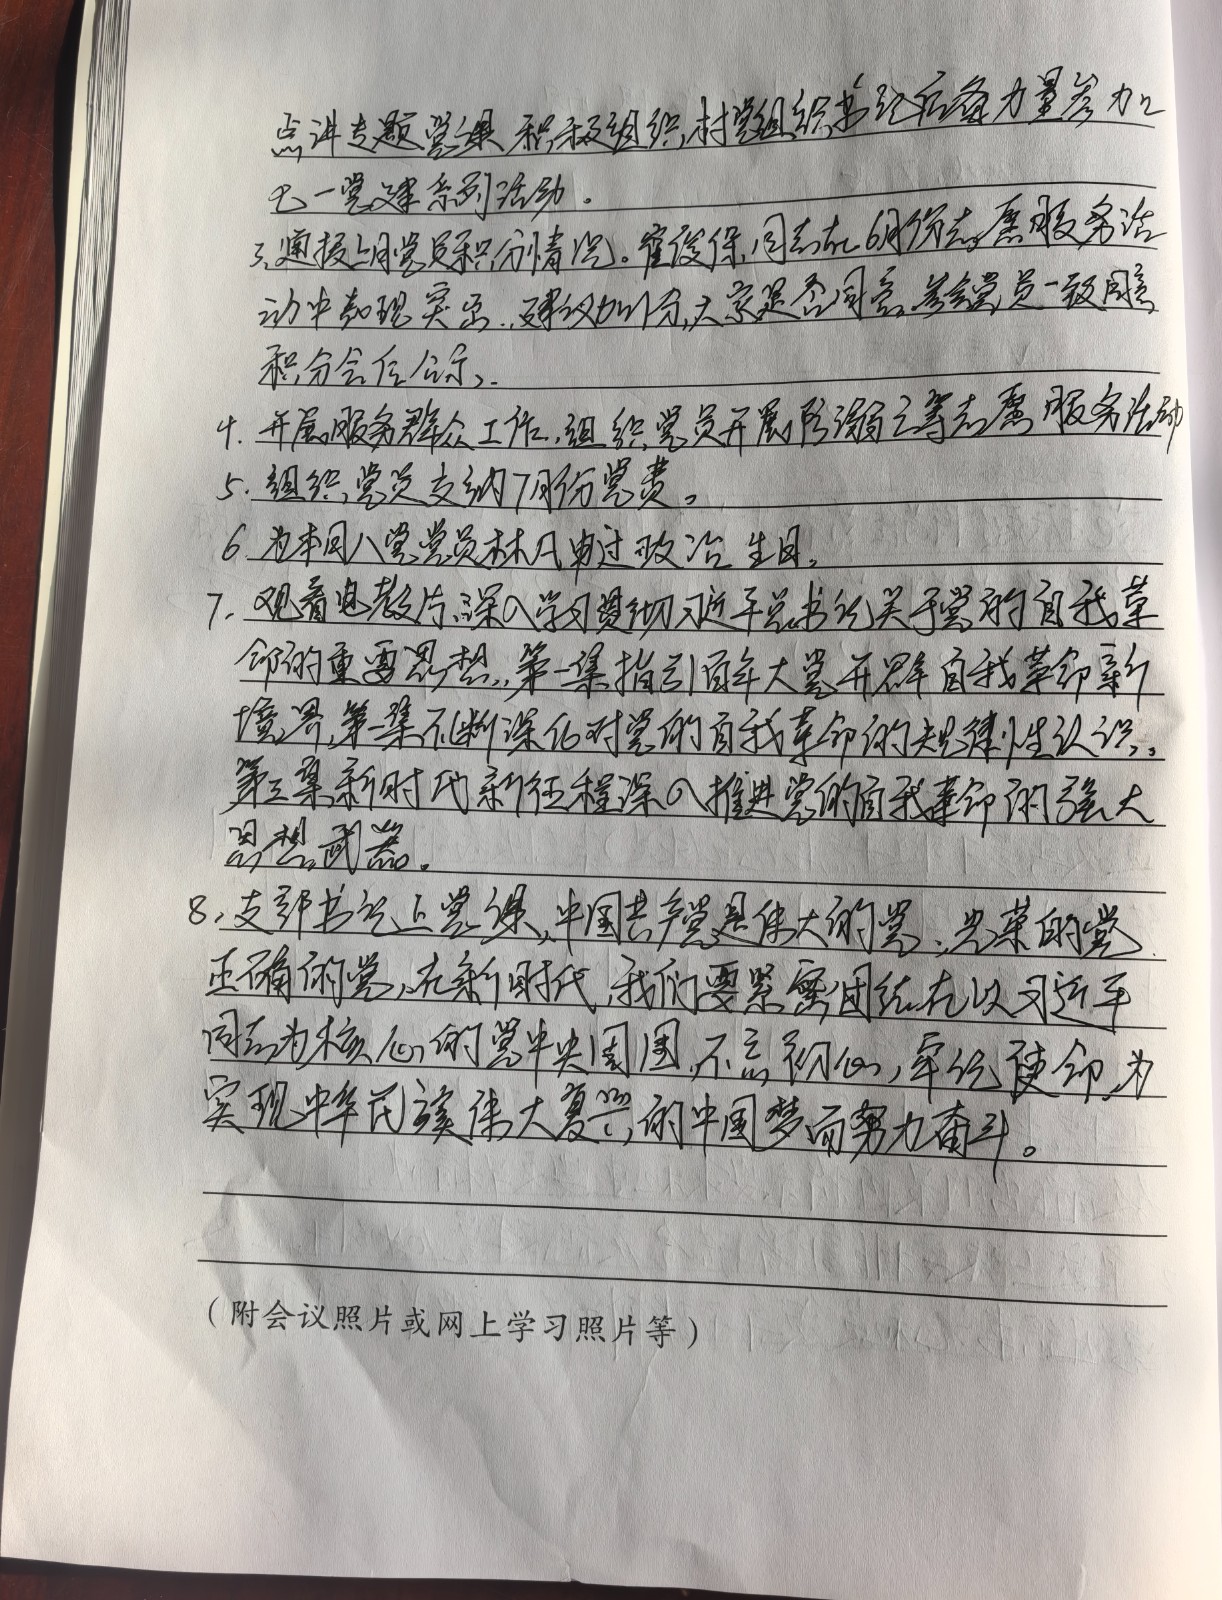 点讲专题党课,积极组织村党组织书记后备力量参加
七一党建系列活动。
3、通报上月党员积分情况。崔俊保同志在6月份志愿服务活
动中表现突出,建议加1分,大家是否同意,参会党员一致同意
积分会后公示。
4. 开展服务群众工作,组织党员开展防溺亡等志愿服务活动
5. 组织党员交纳7月份党费。
6. 为本月入党党员林凤申过政治生日。
7. 观看电教片,深入学习贯彻习近平总书记关于党的自我革
命的重要思想,第一集指引百年大党开辟自我革命新
境界,第二集不断深化对党的自我革命的规律性认识。
第三集新时代新征程深入推进党的自我革命的强大
思想武器。
8、支部书记上党课,中国共产党是伟大的党、光荣的党、
正确的党,在新时代,我们要紧密团结在以习近平
同志为核心的党中央周围,不忘初心,牢记使命,为
实现中华民族伟大复兴的中国梦而努力奋斗。
(附会议照片或网上学习照片等)